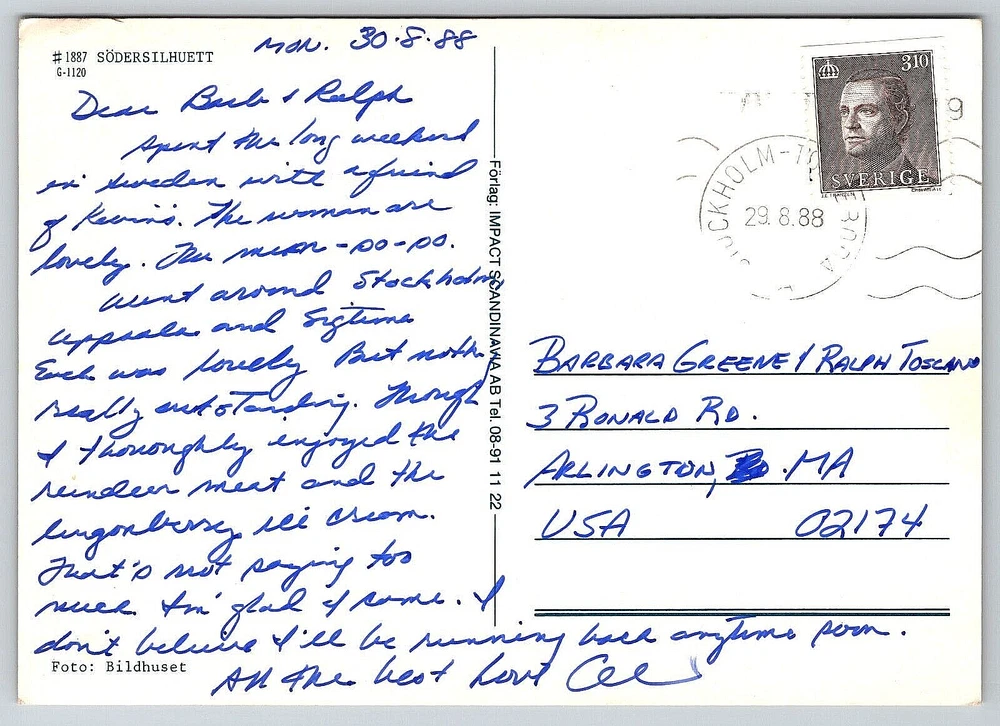 #1887 SÖDERSILHUETT
G-1120
Mon. 30.8.88
Dear Barb & Ralph
Spent the long weekend
in Sweden with a friend
of Kevin's. The woman are
lovely. The men - so-so.
Went around Stockholm,
Uppsala and Sigtuna
Each was lovely But nothing
really outstanding. Though
I thoroughly enjoyed the
reindeer meat and the
lingonberry ice cream.
That's not saying too
much I'm glad I came. I
don't believe I'll be running back anytime soon.
All the best love
Foto: Bildhuset
Förlag: IMPACT SCANDINAVIA AB Tel. 08-91 11 22
310
SVERIGE
STOCKHOLM
29.8.88
BARBARA GREENE / RALPH TOSCANO
3 RONALD RD.
ARLINGTON, MA
USA 02174